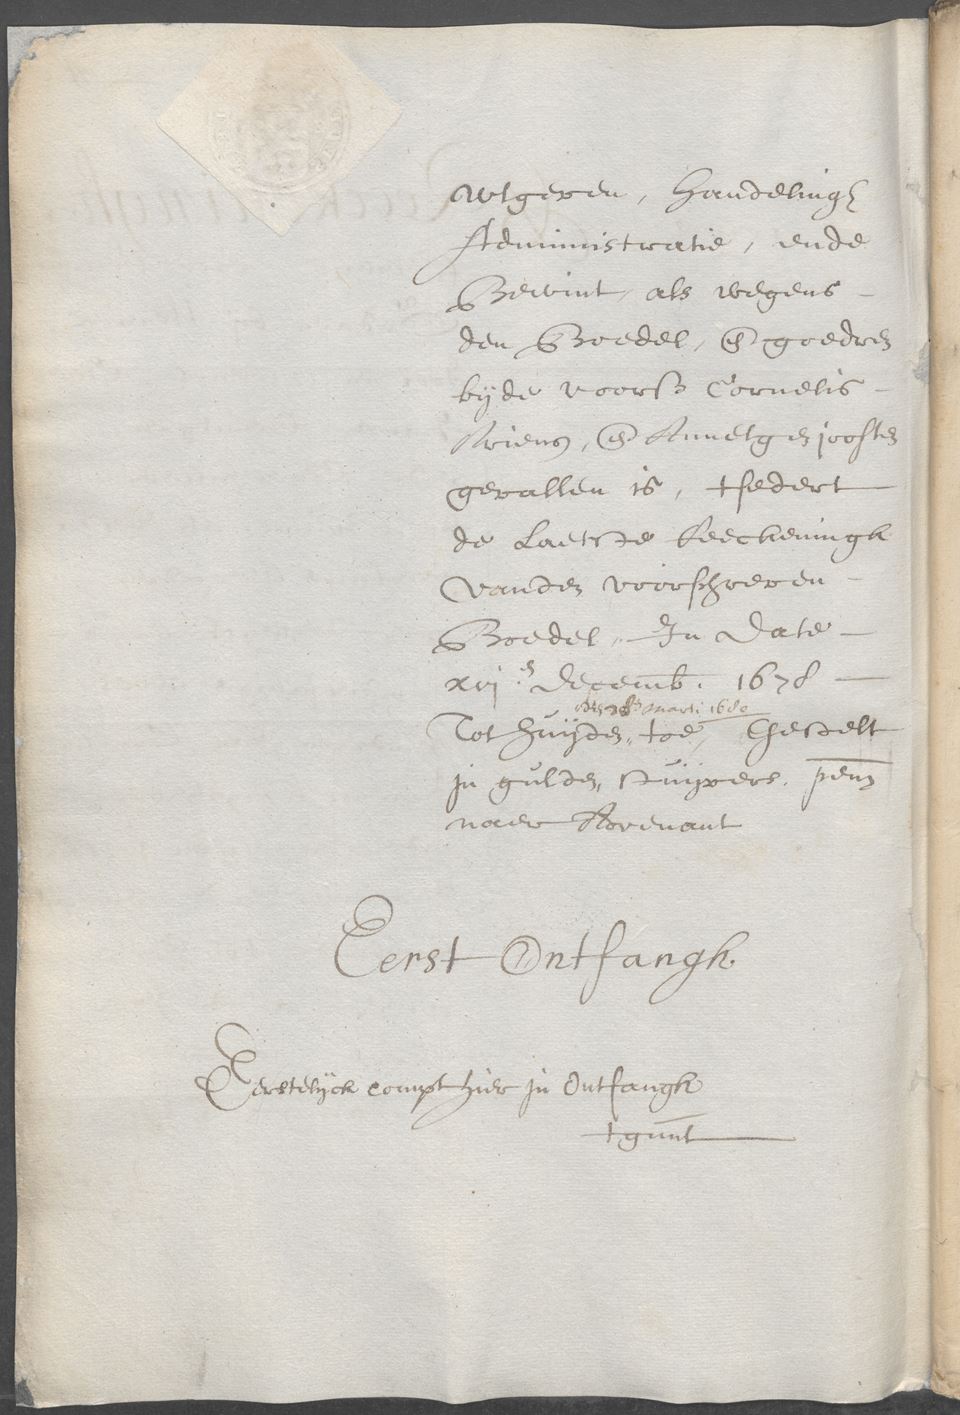 wtgeven, Handeling
Administratie, ende
Bewint, als wegens -
den Boedel, en goedren
bijde voorsz Cornelis -
Ariens, en Annetgen joosten
gevallen is, tsedert
de Laetste Reeckeningh
vanden voorschreven -
Boedel, In date -
xvj en decemb. 1678 -
marti 1680
Tot huijden, toe, Gestelt
in gulden, stuijvers. penn
naer Avenant
Eerst Ontfangh
Eerstelijck compt hier in Ontfangh
tgunt